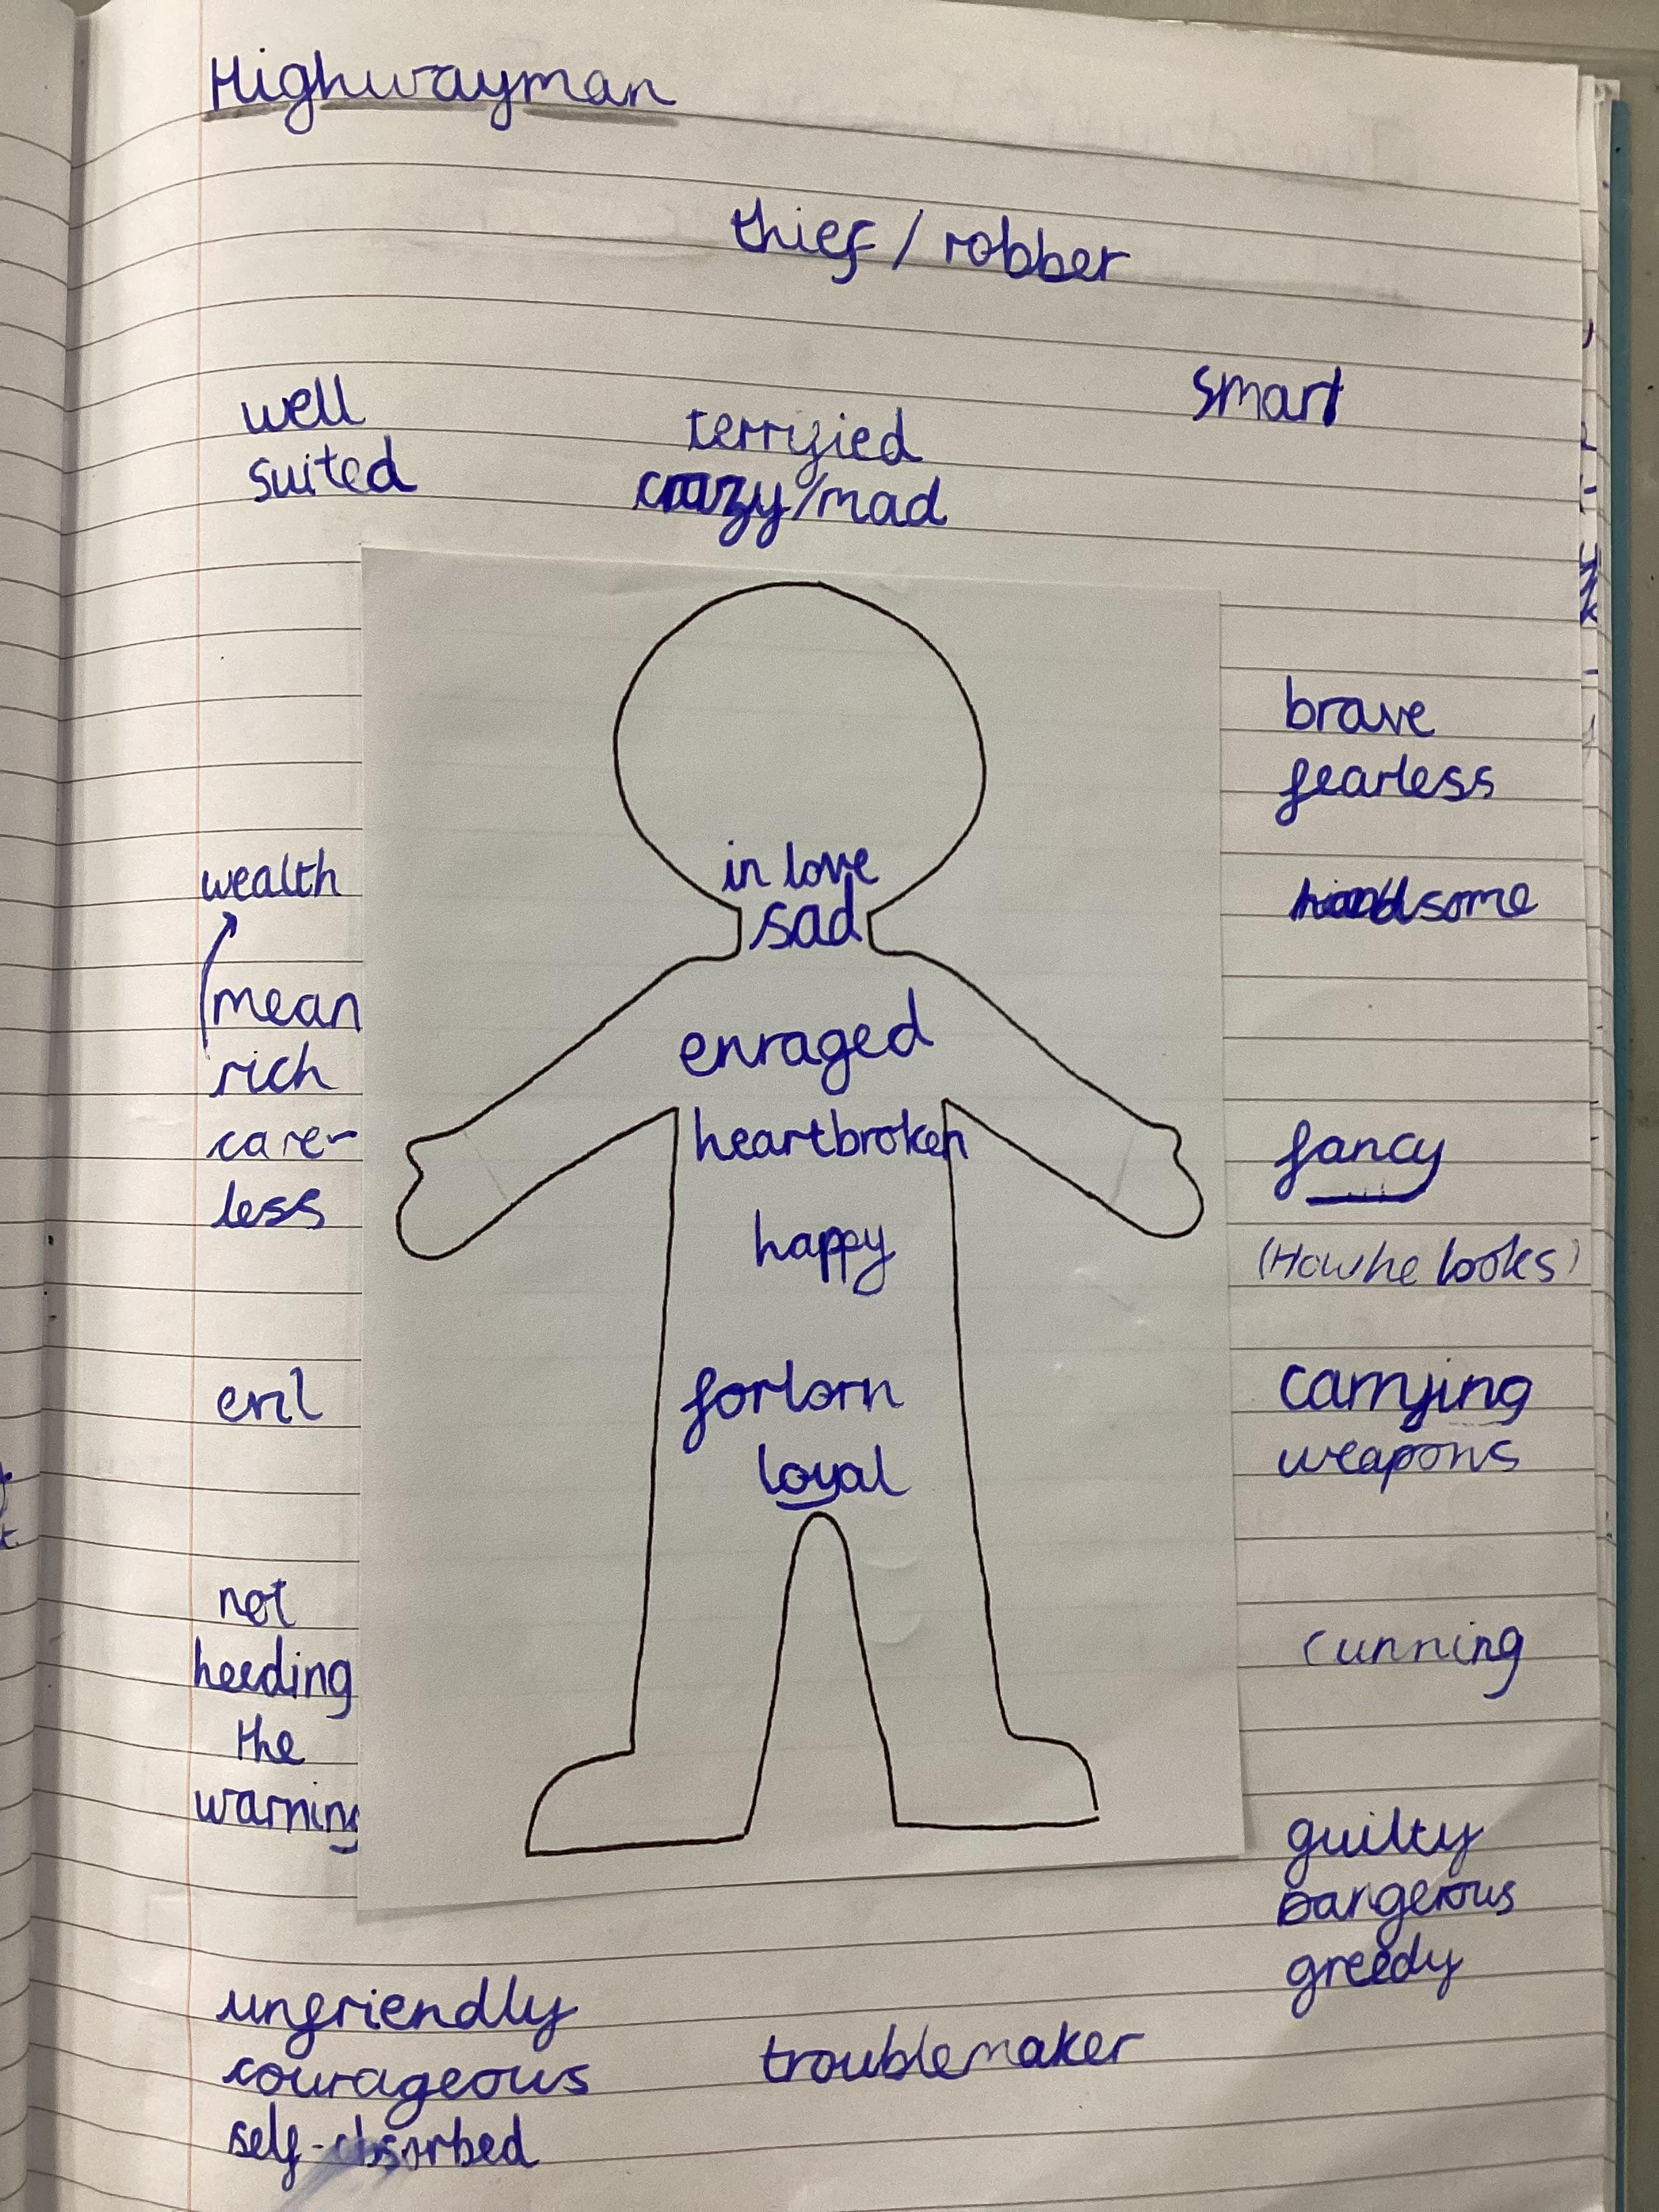 Highwayman
thief / robber
well
suited
terrified
crazy/mad
smart
wealth
mean
rich
care-
less
evil
not
heeding
the
warning
in love
sad
enraged
heartbroken
happy
forlorn
loyal
brave
fearless
handsome
fancy
(How he looks)
carrying
weapons
cunning
guilty
Dangerous
greedy
unfriendly
courageous
self-absorbed
troublemaker